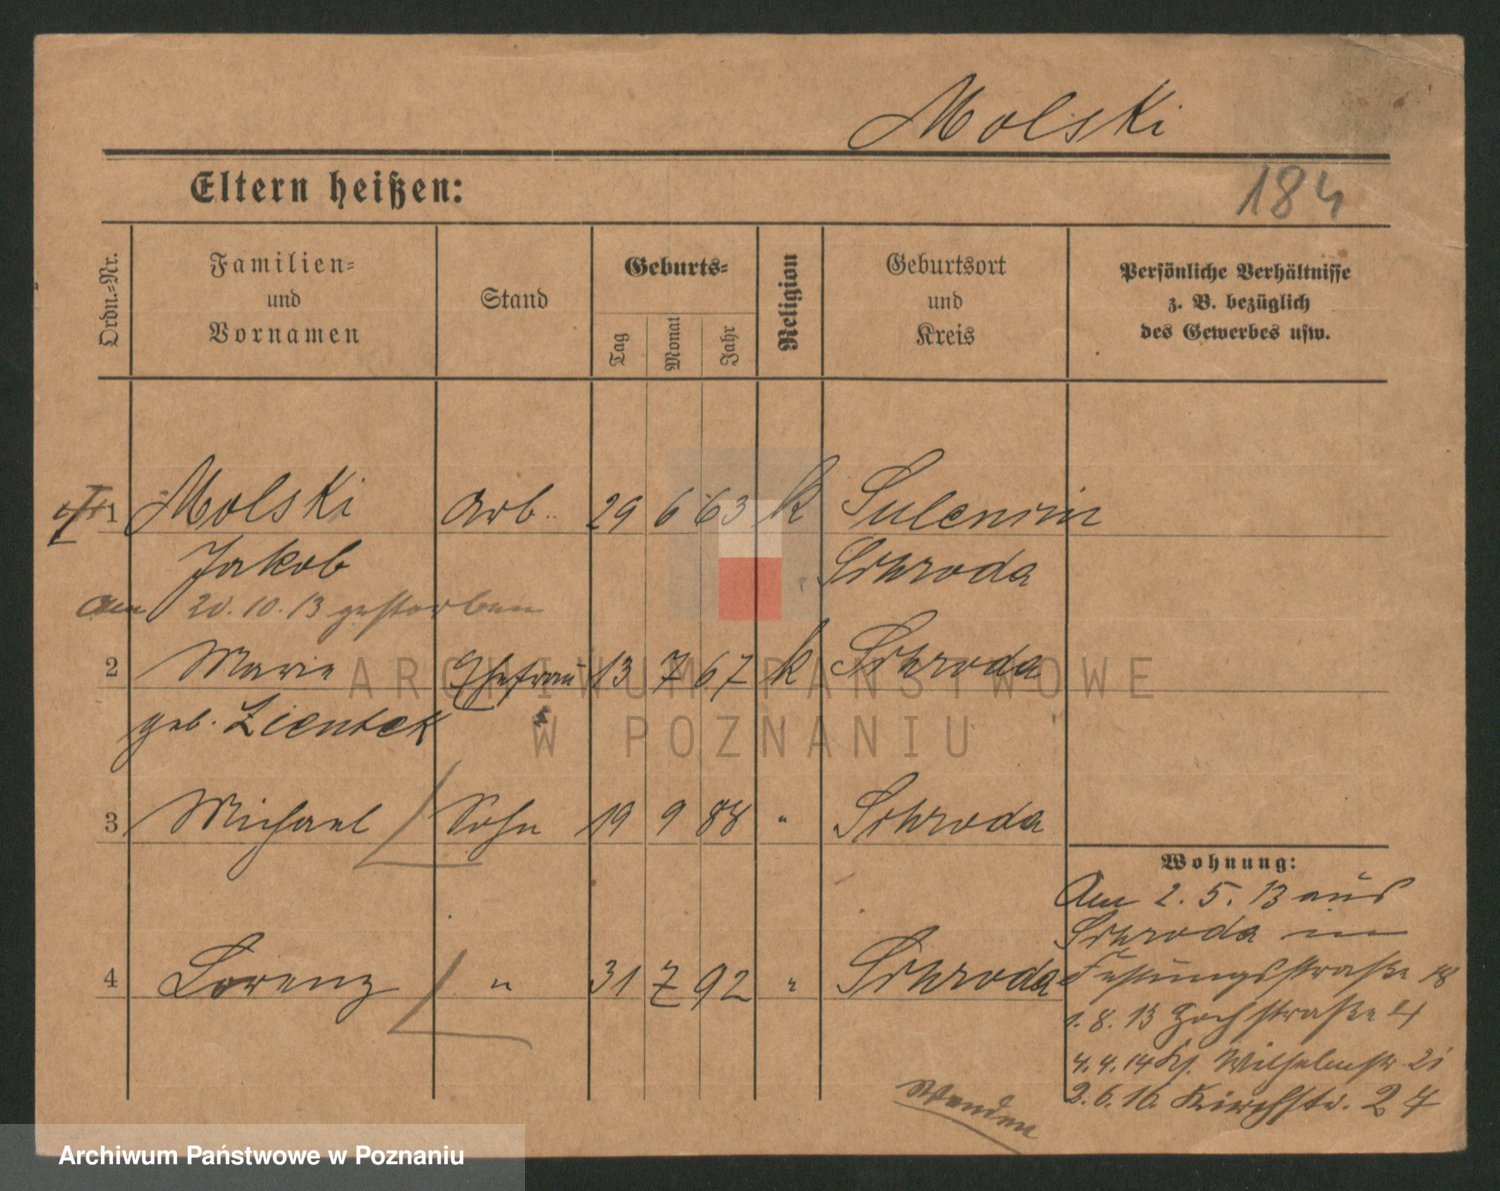 Molski
Eltern heißen:
184
Ordn.-Nr.
Familien-
und
Vornamen
Stand
Geburts-
Tag
Monat
Jahr
Religion
Geburtsort
und
Kreis
Persönliche Verhältnisse
z. B. bezüglich
des Gewerbes usw.
1 Molski Arb. 29 6 63 k
Jakob Schroda
am 20.10.13 gestorben
2 Marie Ehefrau 13 7 67 k Schroda
geb. Zientek
3 Michael Sohn 19 9 88 " Schroda
4 Lorenz " 31 7 92 " Schroda
Wohnung:
Am 2.5.13 aus
Schroda in
Festungsstraße 18
1.8.13 Hochstraße 4
4.4.14 Wilhelmstr. 21
2.6.16. Kirchstr. 27
Wenden
ARCHIWUM PAŃSTWOWE
W POZNANIU
Archiwum Państwowe w Poznaniu